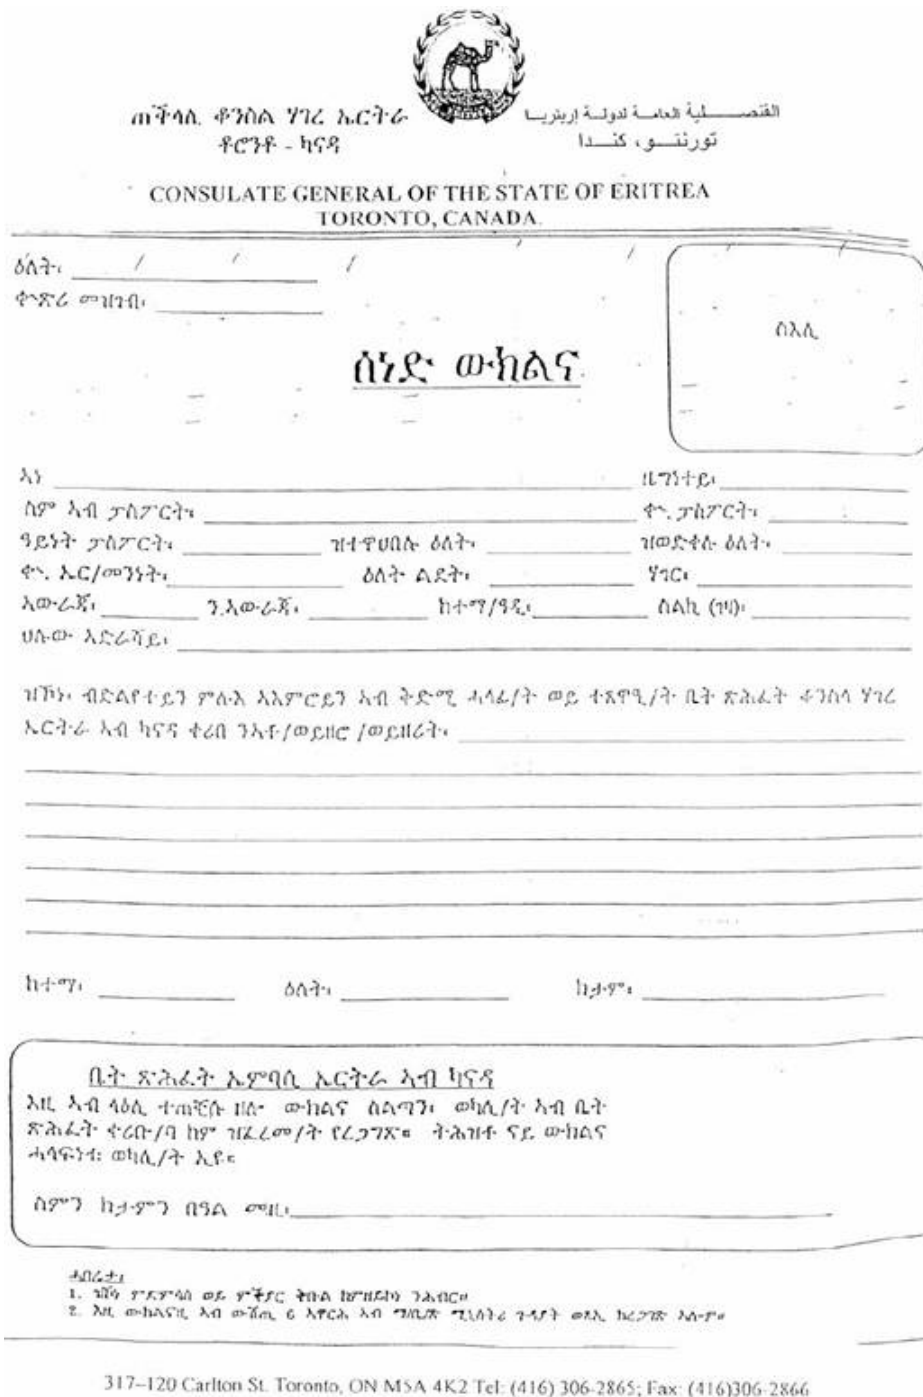 ጠቕላሊ ቆንስል ሃገረ ኤርትራ
ቶሮንቶ - ካናዳ
القنصـــــلية العامـة لدولـة إريتريـا
تورنتـــو، كنــدا
CONSULATE GENERAL OF THE STATE OF ERITREA
TORONTO, CANADA.
ዕለት፡
ቍጽሪ መዝገብ፡
ስእሊ
ሰነድ ውክልና
ኣነ ዜግነተይ፡
ስም ኣብ ፓስፖርት፡ ቍ. ፓስፖርት፡
ዓይነት ፓስፖርት፡ ዝተዋህበሉ ዕለት፡ ዝወድቀሉ ዕለት፡
ቍ. ኤር/መንነት፡ ዕለት ልደት፡ ሃገር፡
ኣውራጃ፡ ን.ኣውራጃ፡ ከተማ/ዓዲ፡ ስልኪ (ገዛ)፡
ህሉው ኣድራሻይ፡
ዝኾነ፡ ብድልየተይን ምሉእ ኣእምሮይን ኣብ ቅድሚ ሓላፊ/ት ወይ ተጸዋዒ/ት ቤት ጽሕፈት ቆንስላ ሃገረ
ኤርትራ ኣብ ካናዳ ቀሪበ ንኣቶ/ወይዘሮ /ወይዘሪት፡
ከተማ፡ ዕለት፡ ክታም፡
ቤት ጽሕፈት ኤምባሲ ኤርትራ ኣብ ካናዳ
እዚ ኣብ ላዕሊ ተጠቒሱ ዘሎ ውክልና ስልጣን፡ ወካሊ/ት ኣብ ቤት
ጽሕፈት ቀሪቡ/ባ ከም ዝፈረመ/ት የረጋግጽ። ትሕዝቶ ናይ ውክልና
ሓላፍነቱ ወካሊ/ት እዩ።
ስምን ክታምን በዓል መዚ፡
ሓበሬታ፡
1. ምድምሳስ ወይ ምችያር ቅቡል ከምዘይኮነ ንሕብር።
2. እዚ ውክልናዚ ኣብ ውሽጢ 6 ኣዋርሕ ኣብ ሚኒስትሪ ጉዳያት ወጻኢ ክረጋገጽ ኣለዎ።
317–120 Carlton St. Toronto, ON M5A 4K2 Tel: (416) 306-2865; Fax: (416)306-2866